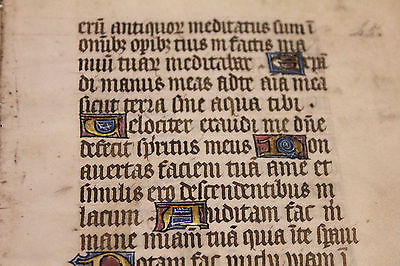 erū antiquor meditatus sum ī
omībʒ opibʒ tuis in factis ma
nuū tuar meditabar Expā
di manus meas ad te aīa mea
sicut terra sine aqua tibi ·
Velociter exaudi me dn̄e
defecit spiritus meus Non
auertas faciem tuā a me et
similis ero descendentibus in
lacum Auditam fac m̄
mane miam tuā quia ī te spaui
Notam fac michi viam ī